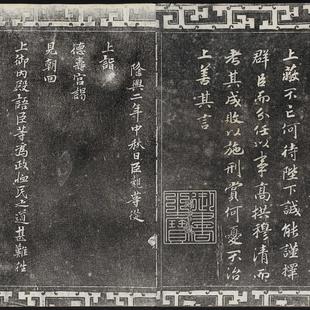 上蔽不亡何待陛下誠能謹擇
群臣而分任以事高拱穆清而
考其成敗以施刑賞何憂不治
上善其言
御書之寶
隆興二年中秋日臣等從
上詣
德壽宮謁
見朝回
上御內殿語臣等為政臨民之道甚難往